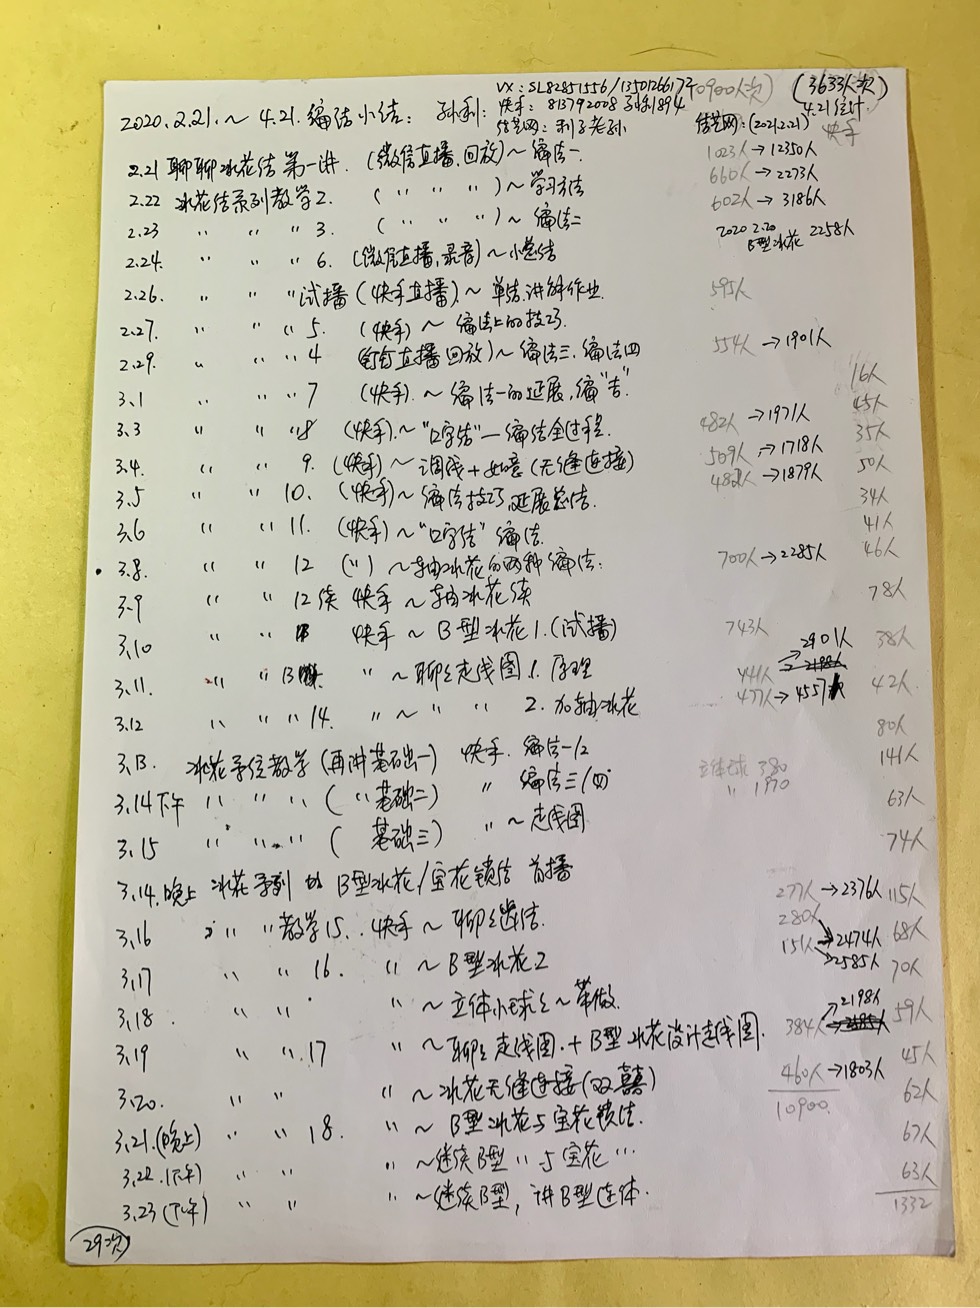 VX：SL82851556/13501266173 10900人次） （3633人次）
2020.2.21.～4.21.编结小结： 孙利： 快手：813792008 孙利1894 4.21统计
结艺网：利子老孙 结艺网：(2021.2.21) 快手
2.21 聊聊冰花结 第一讲. (微信直播,回放)～编法一. 1023人→12350人
2.22 冰花结系列教学2. ( 〃 〃 〃 )～学习方法 660人→2273人
2.23 〃 〃 〃 3. ( 〃 〃 〃 )～编法二 602人→3186人
2020 2.20 B型冰花 2258人
2.24. 〃 〃 6. (微信直播,录音)～小总结
2.26. 〃 〃 〃试播 (快手直播)～单结.讲解作业. 595人
2.27. 〃 〃 〃 5. (快手)～编法上的技巧.
2.29. 〃 〃 〃 4 钉钉直播回放)～编法三.编法四 554人→1901人
3.1 〃 〃 〃 7 (快手).～编法一的延展,编"吉". 16人
3.3 〃 〃 〃8 (快手).～"口字结"一编结全过程. 482人→1971人 45人
3.4. 〃 〃 9. (快手)～调线+如意(无缝连接) 509人→1718人 35人
3.5 〃 〃 10. (快手)～编法技巧,延展总结. 482人→1879人 50人
3.6 〃 〃 11. (快手)～"口字结"编法. 34人
41人
3.8. 〃 〃 12 (〃)～抽冰花的两种编法. 700人→2285人 46人
3.9 〃 〃 12续 快手～抽冰花续 78人
3.10 〃 〃 13 快手～B型冰花1.(试播) 743人
3.11. 〃 〃 13 〃～聊聊走线图1.原理 441人→2901人 38人
3.12 〃 〃 〃 14. 〃～〃 〃 2.加抽冰花 477人→4557人 42人
80人
3.13. 冰花系统教学(再讲基础一) 快手.编法一/2 立体球 380 141人
3.14下午 〃 〃 〃 (〃基础二) 〃 编法三/四 〃 1970 63人
3.15 〃 〃 〃 ( 基础三) 〃～走线图 74人
3.14.晚上 冰花系列 B型冰花/宝花锁结 首播 277人→2376人 115人
3.16 〃 〃 〃教学15.. 快手～聊聊结. 280人 68人
3.17 〃 〃 16. 〃～B型冰花2 151人→2474人 2585人 70人
3.18 〃 〃 〃～立体小球～带做. 2198人 59人
3.19 〃 〃.17 〃～聊聊走线图.+B型冰花设计走线图. 384人 45人
3.20. 〃 〃 〃～冰花无缝连接(双囍) 460人→1803人 62人
10900
3.21.(晚上) 〃 〃 18. 〃～B型冰花与宝花锁结. 67人
3.22.(下午) 〃 〃 〃～继续B型〃与宝花… 63人
3.23(下午) 〃 〃 〃～继续B型,讲B型连体. 1332
29次